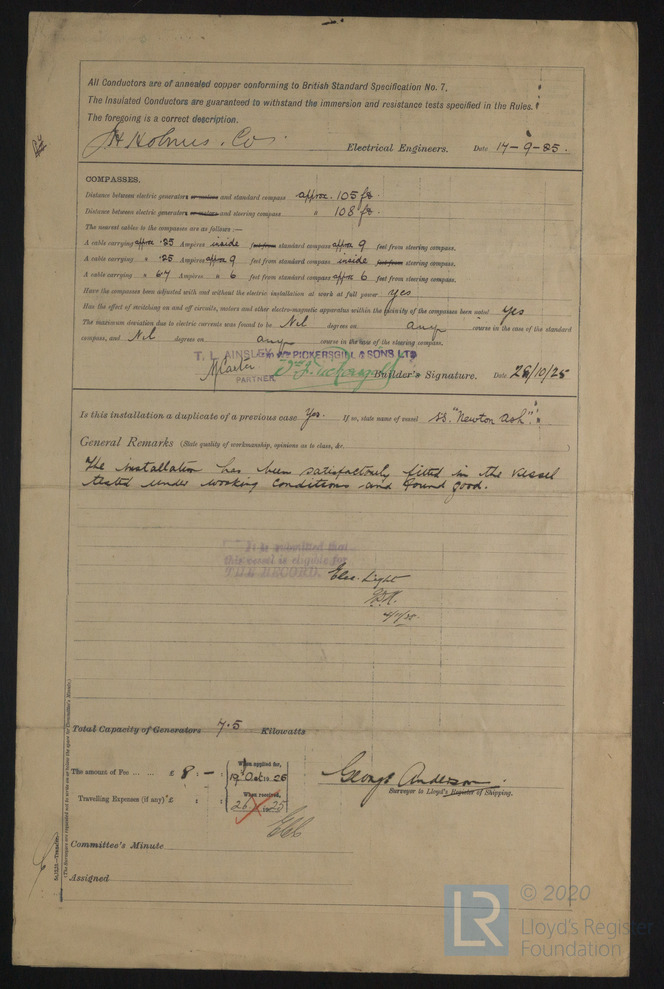 All Conductors are of annealed copper conforming to British Standard Specification No. 7,
The Insulated Conductors are guaranteed to withstand the immersion and resistance tests specified in the Rules.
The foregoing is a correct description.
JH Holmes. Co Electrical Engineers. Date 17-9-25.
COMPASSES.
Distance between electric generators or motors and standard compass approx. 105 ft.
Distance between electric generators or motors and steering compass " 108 ft.
The nearest cables to the compasses are as follows:—
A cable carrying approx .25 Ampères inside feet from standard compass approx 9 feet from steering compass.
A cable carrying " .25 Ampères approx 9 feet from standard compass inside feet from steering compass.
A cable carrying " 6.7 Ampères " 6 feet from standard compass approx 6 feet from steering compass.
Have the compasses been adjusted with and without the electric installation at work at full power yes
Has the effect of switching on and off circuits, motors and other electro-magnetic apparatus within the vicinity of the compasses been noted yes
The maximum deviation due to electric currents was found to be Nil degrees on any course in the case of the standard
compass, and Nil degrees on any course in the case of the steering compass.
T. L. AINSLEY PICKERSGILL & SONS LTD
PARTNER Builder's Signature. Date 28/10/25
Is this installation a duplicate of a previous case Yes. If so, state name of vessel ss. "Newton Ash".
General Remarks (State quality of workmanship, opinions as to class, &c.
The installation has been satisfactorily fitted in the vessel
tested under working conditions and found good.
It is submitted that
this vessel is eligible for
THE RECORD. Elec. Light
4/11/25.
Total Capacity of Generators 7.5 Kilowatts
The amount of Fee ... ... £ 8 : — : When applied for,
19th Oct 1925
Travelling Expenses (if any) £ : : When received,
26 X 1925
George Anderson.
Surveyor to Lloyd's Register of Shipping.
Committee's Minute
Assigned
(The Surveyors are requested not to write on or below the space for Committee's Minute.)
© 2020
LR
Lloyd's Register
Foundation